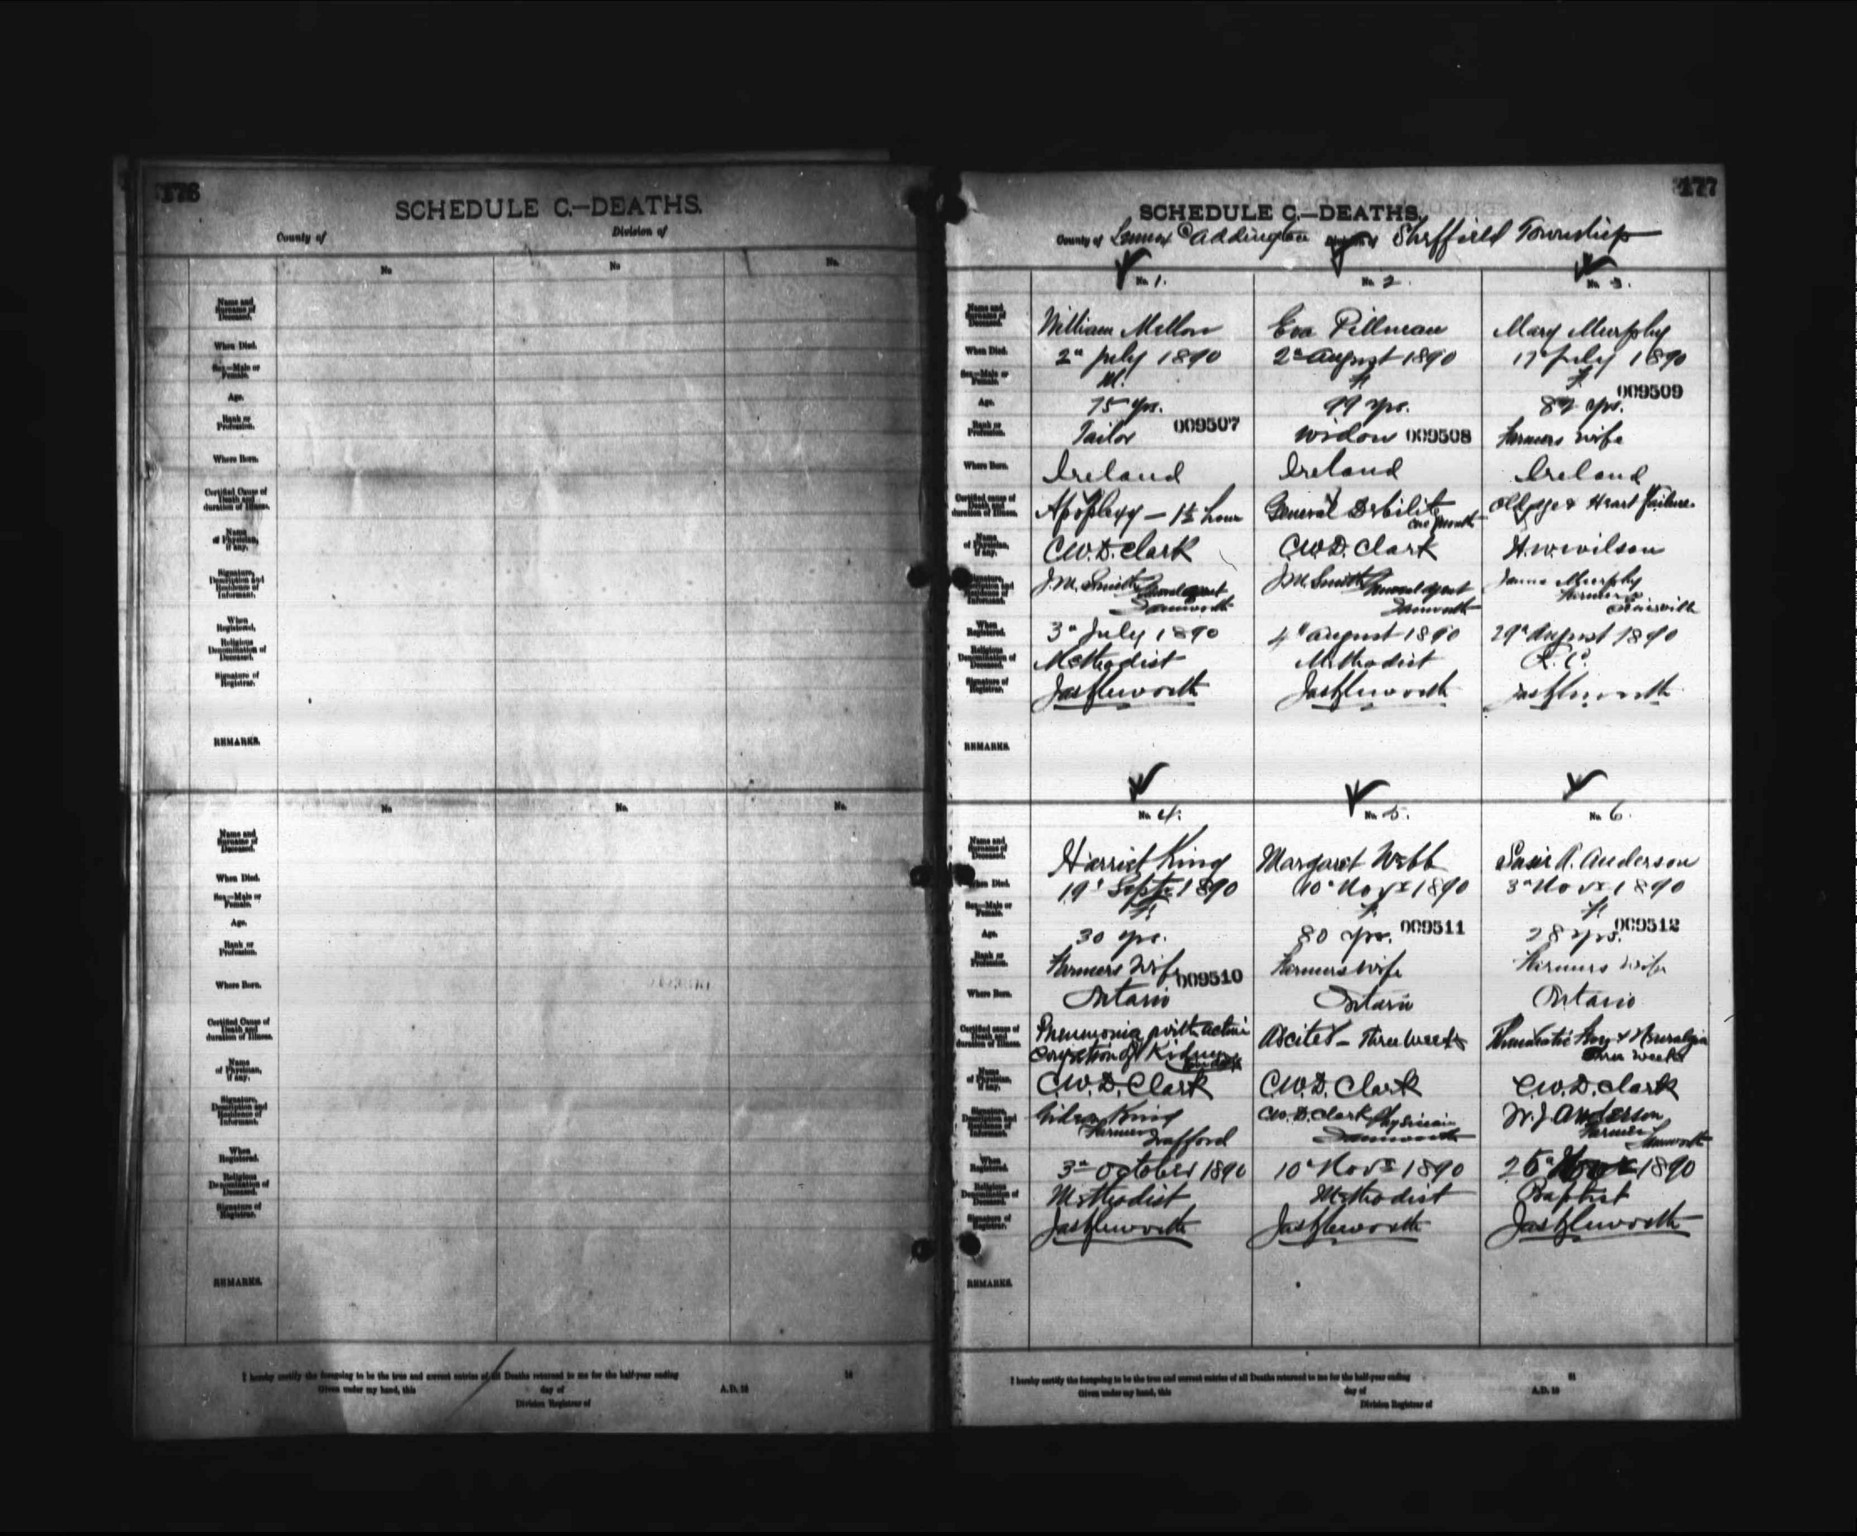 176
SCHEDULE C.—DEATHS.
County of
Division of
No No No.
Name and Surname of Deceased.
When Died.
Sex—Male or Female.
Age.
Rank or Profession.
Where Born.
Certified Cause of Death and duration of Illness.
Name of Physician, if any.
Signature, Description and Residence of Informant.
When Registered.
Religious Denomination of Deceased.
Signature of Registrar.
REMARKS.
No No. No.
Name and Surname of Deceased.
When Died.
Sex—Male or Female.
Age.
Rank or Profession.
Where Born.
Certified Cause of Death and duration of Illness.
Name of Physician, if any.
Signature, Description and Residence of Informant.
When Registered.
Religious Denomination of Deceased.
Signature of Registrar.
REMARKS.
I hereby certify the foregoing to be the true and correct entries of all Deaths returned to me for the half-year ending 18
Given under my hand, this day of A.D. 18
Division Registrar of
177
SCHEDULE C.—DEATHS.
County of Lennox & Addington Division of Sheffield Township
No. 1. No. 2. No. 3.
Name and Surname of Deceased. William Mellow Eva Pillman Mary Murphy
When Died. 2" July 1890 2" August 1890 17" July 1890
Sex—Male or Female. M. F. F.
Age. 75 yrs. 99 yrs. 87 yrs. 009509
Rank or Profession. Tailor 009507 Widow 009508 Farmers Wife
Where Born. Ireland Ireland Ireland
Certified cause of Death and duration of Illness. Apoplexy — 1½ hour General Debility one month Old age & Heart Failure
Name of Physician, if any. C.W.D. Clark C.W.D. Clark H.W. Wilson
Signature, Description and Residence of Informant. J.M. Smith Tamworth J.M. Smith Tamworth Murphy Farmer
When Registered. 3" July 1890 4" August 1890 29" August 1890
Religious Denomination of Deceased. Methodist Methodist R.C.
Signature of Registrar. Jas Aylsworth Jas Aylsworth Jas Aylsworth
REMARKS.
No. 4. No. 5. No. 6.
Name and Surname of Deceased. Harriet King Margaret Webb Susie A. Anderson
When Died. 19" Sept. 1890 10" Novr 1890 3" Novr 1890
Sex—Male or Female. F. F. F.
Age. 30 yrs. 80 yrs. 009511 28 yrs. 009512
Rank or Profession. Farmers Wife 009510 Farmers Wife Farmers Wife
Where Born. Ontario Ontario Ontario
Certified cause of Death and duration of Illness. Pneumonia with active Congestion of Kidneys Ascites — Three Weeks Neuralgia Three Weeks
Name of Physician, if any. C.W.D. Clark C.W.D. Clark C.W.D. Clark
Signature, Description and Residence of Informant. King Farmer C.W.D. Clark Physician Tamworth W.J. Anderson Farmer Tamworth
When Registered. 3" October 1890 10" Novr 1890 1890
Religious Denomination of Deceased. Methodist Methodist Baptist
Signature of Registrar. Jas Aylsworth Jas Aylsworth Jas Aylsworth
REMARKS.
I hereby certify the foregoing to be the true and correct entries of all Deaths returned to me for the half-year ending
Given under my hand, this day of A.D. 18
Division Registrar of